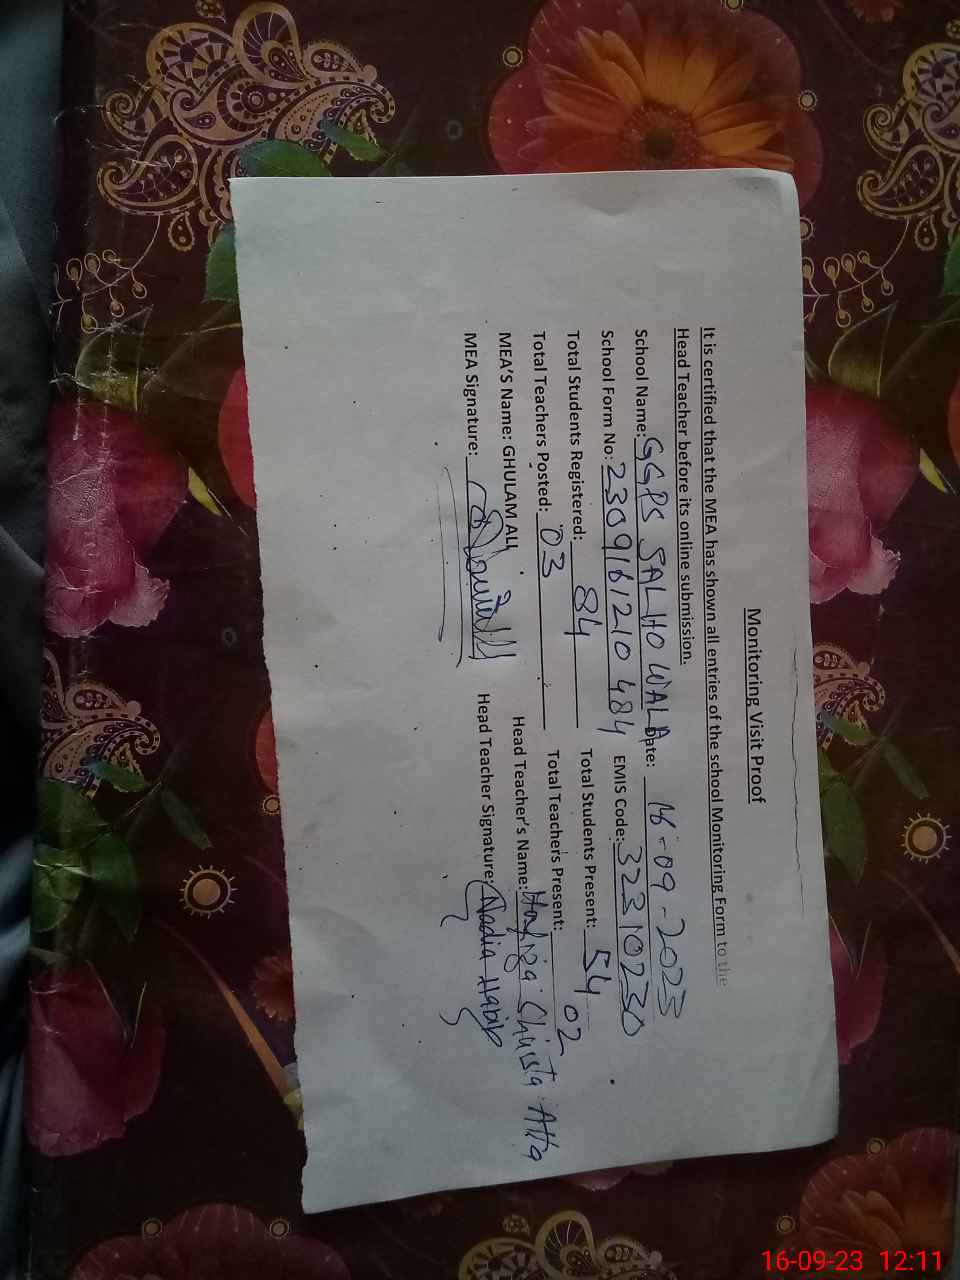 Monitoring Visit Proof
It is certified that the MEA has shown all entries of the school Monitoring Form to the
Head Teacher before its online submission.
School Name: GGPS SALHO WALA Date: 16-09-2023
School Form No: 2309161210484 EMIS Code: 32310230
Total Students Registered: 84 Total Students Present: 54
Total Teachers Posted: 03 Total Teachers Present: 02
MEA'S Name: GHULAM ALI Head Teacher's Name: Hafiza Atta
MEA Signature: Head Teacher Signature: Nadia Habib
16-09-23 12:11